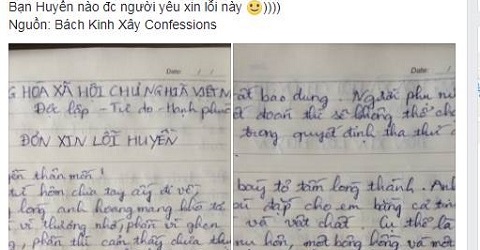 Bạn Huyền nào đc người yêu xin lỗi này 🙂))))
Nguồn: Bách Kinh Xây Confessions
Date: / /
G HÒA XÃ HỘI CHỦ NGHĨA VIỆT N
Độc lập - Tự do - Hạnh phúc
ĐƠN XIN LỖI HUYỀN
yền thân mến!
từ hôm chia tay ấy đi về,
lòng anh hoang mang khó tả
vì thương nhớ, phần vì ghen
, phần thì cảm thấy chưa thu
Date: / /
ất bao dung. Người phụ nữ
đoán thì sẽ không thể ch
trong quyết định tha thứ c
bày tỏ tấm lòng thành. Anh
đắp cho em bằng cả tin
và vật chất. Cụ thể là
hôn, một bông hồng và mô